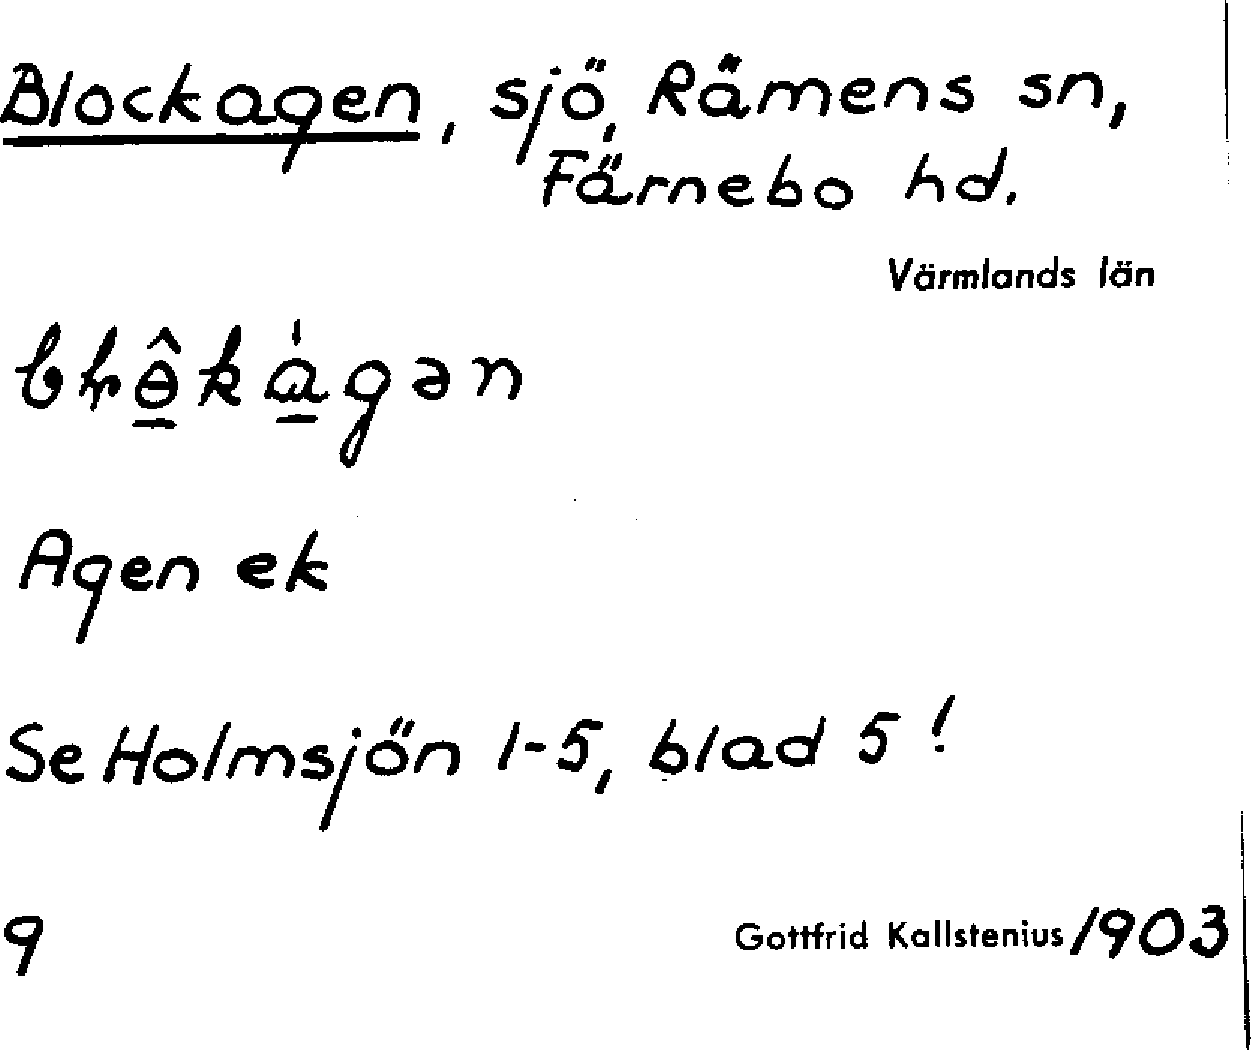 Blockagen, sjö, Rämens sn,
Färnebo hd.
Värmlands län
Agen ek
Se Holmsjön 1-5, blad 5!
9 Gottfrid Kallstenius /1903